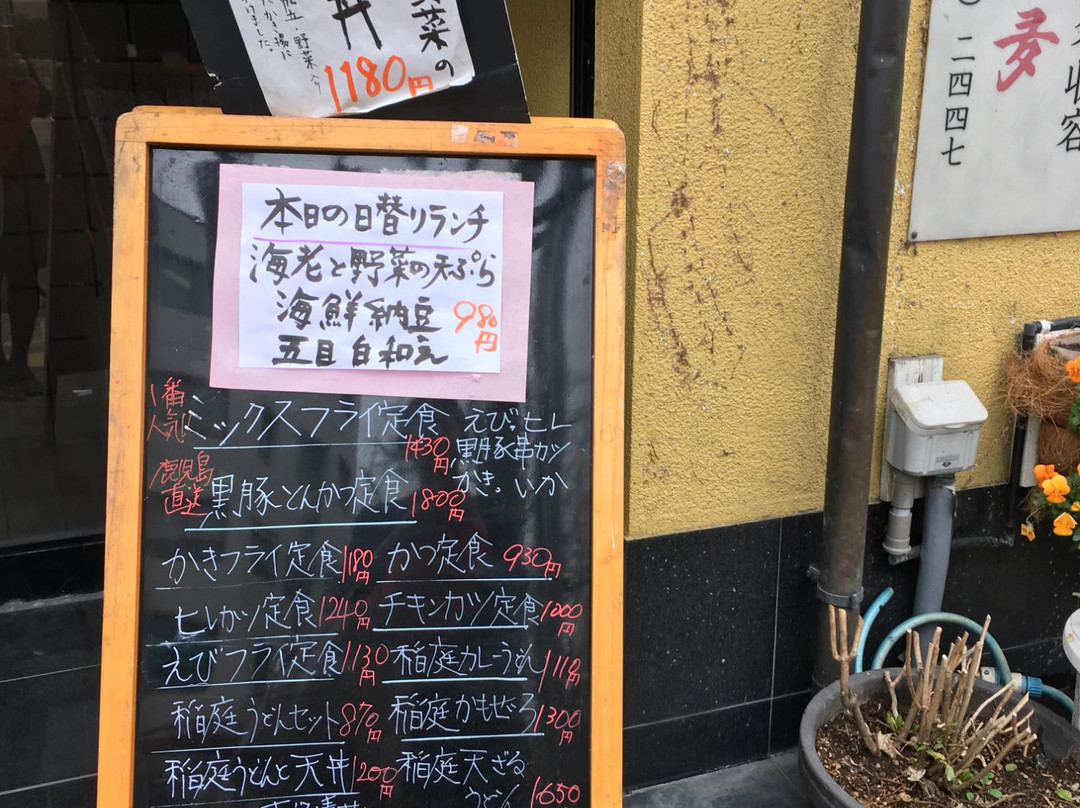 菜の
丼
帆立・野菜入り
かき揚に
1180円
二四四七
収容
本日の日替りランチ
海老と野菜の天ぷら
海鮮納豆 980円
五目白和え
1番人気 ミックスフライ定食 1430円
えび。ヒレ
黒豚串カツ
かき。いか
鹿児島直送 黒豚とんかつ定食 1800円
かきフライ定食 1180円 かつ定食 930円
ヒレカツ定食 1240円 チキンカツ定食 1000円
えびフライ定食 1130円 稲庭カレーうどん 1110円
稲庭うどんセット 870円 稲庭かもせいろ 1300円
稲庭うどんと天丼 1200円 稲庭天ざるうどん 1650